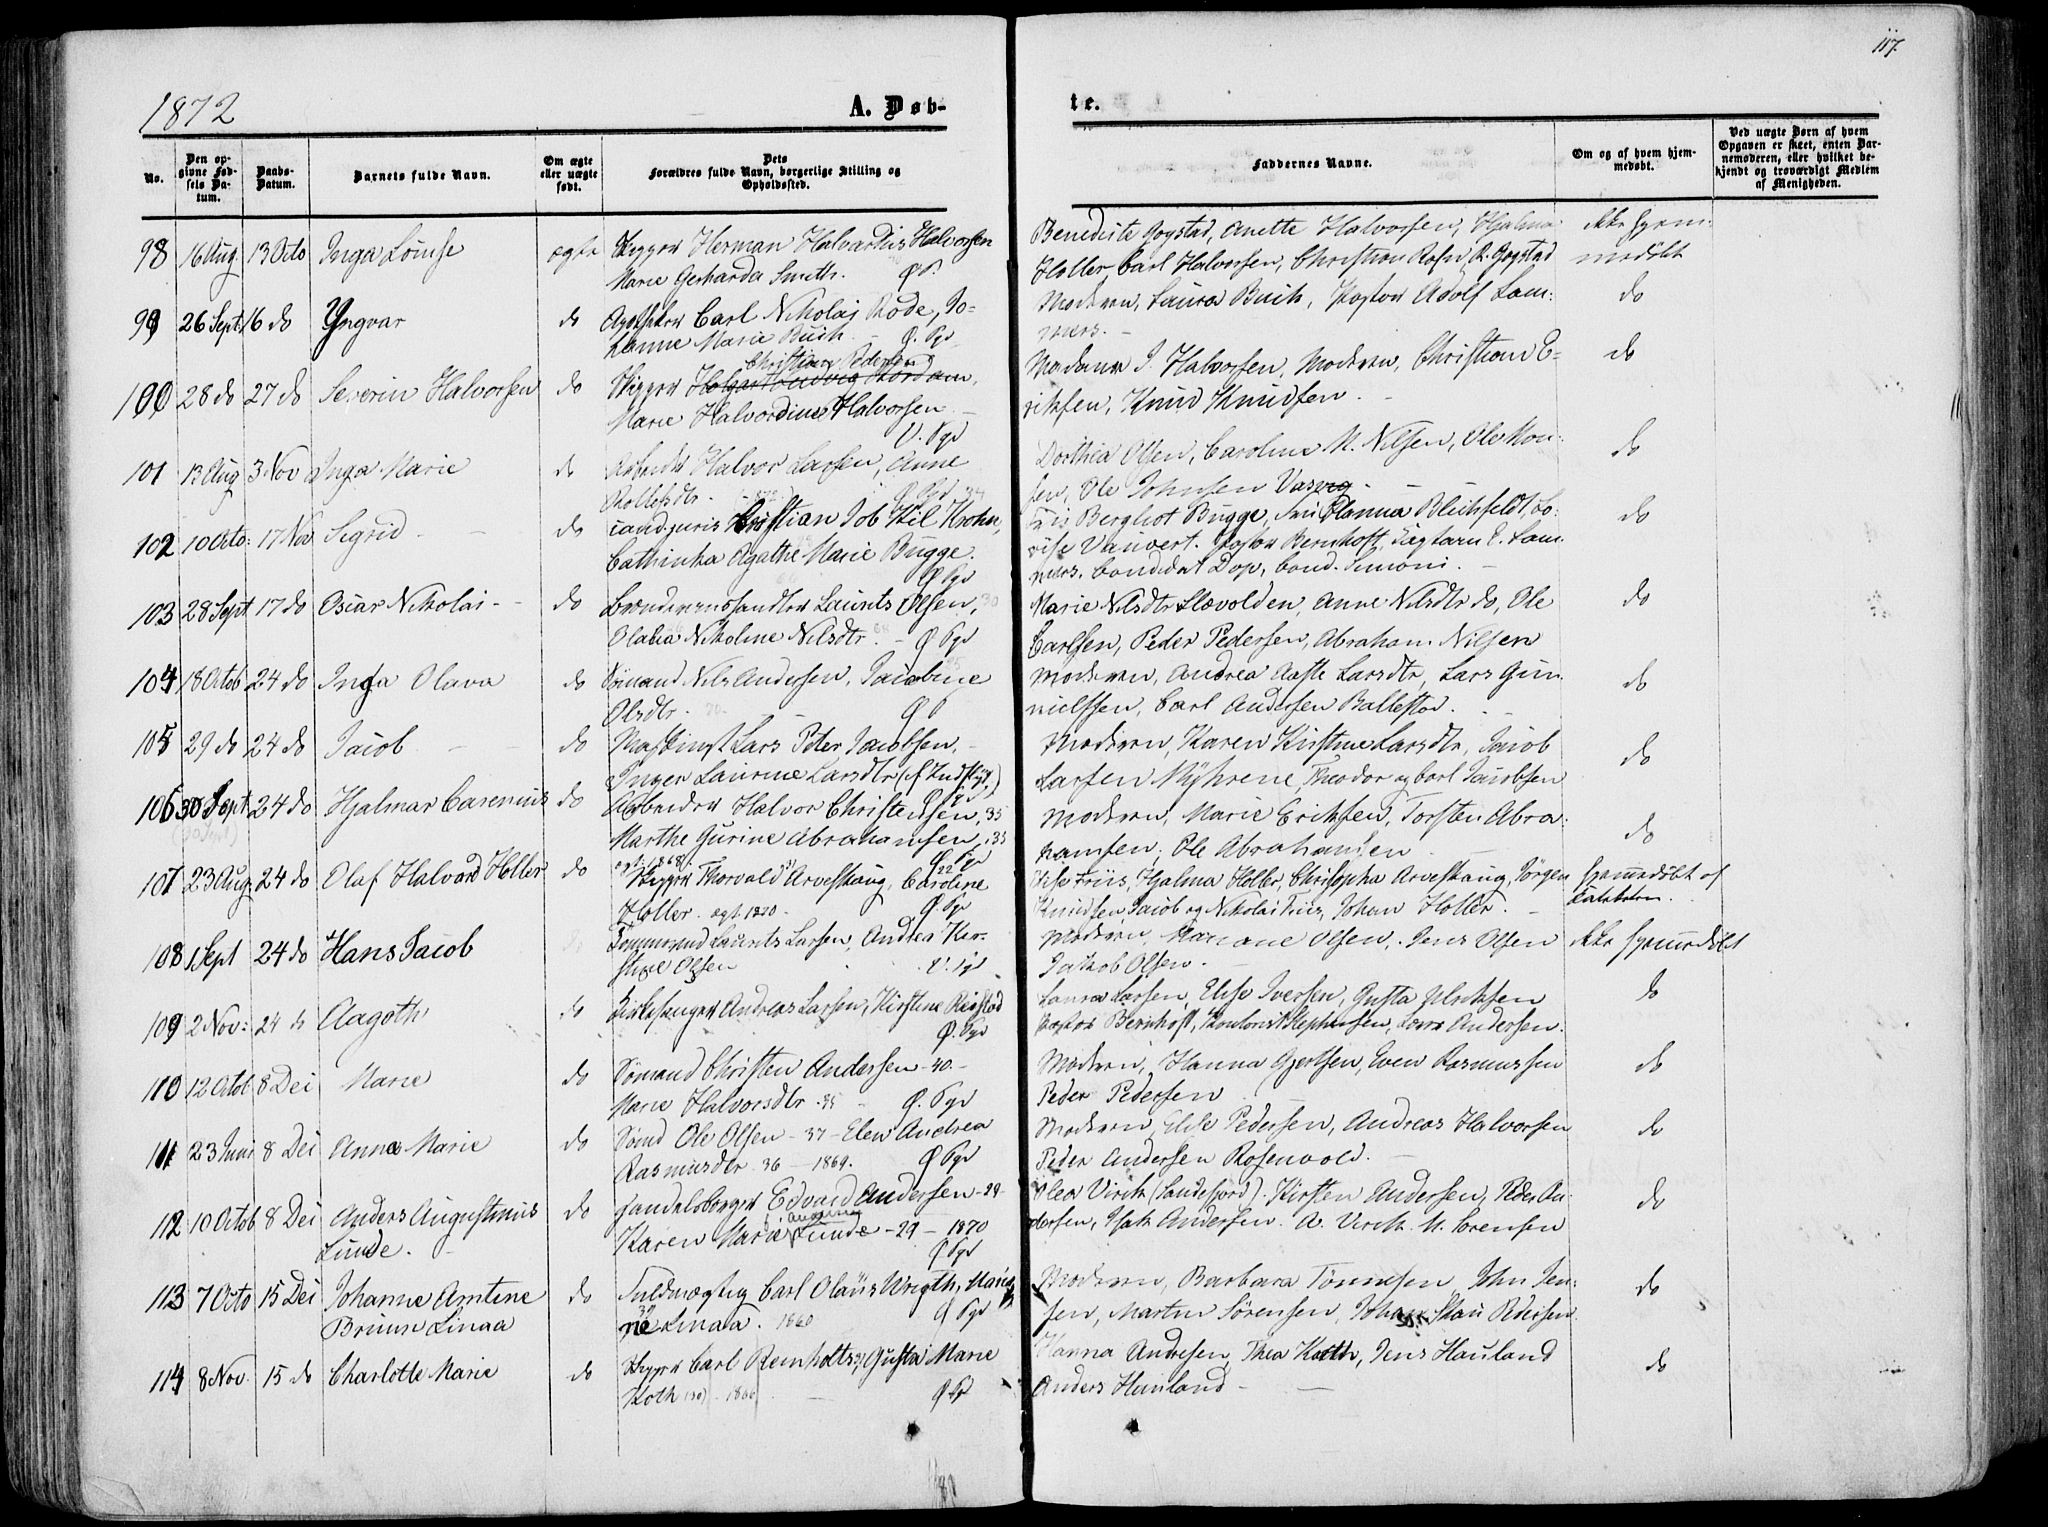 117.
1872
A. Døb-
te.
No.
Den op-
givne Fød-
sels Da-
tum.
Daabs-
Datum.
Barnets fulde Navn.
Om ægte
eller uægte
født.
Dets
Forældres fulde Navn, borgerlige Stilling og
Opholdssted.
Faddernes Navne.
Om og af hvem hjem-
medøbt.
Ved uægte Børn af hvem
Opgaven er skeet, enten Bar-
nemoderen, eller hvilket be-
kjendt og troværdigt Medlem
af Menigheden.
98 16 Aug 13 Octo Inga Louise ægte Skipper Herman Halvardius Halvorsen
Marie Gerharda Smith.
Benedicte Gogstad, Anette Halvorsen, Hjalmar
Holler, Carl Halvorsen, Christian R. Gogstad
ikke hjem-
medøbt
99 26 Sept 16 do Yngvar do Apotheker Carl Nikolai Rode, Jo-
hanne Marie Buch. Ø. Pgd
Moderen, Laura Buch, Pastor Adolf Lam-
mers. do
100 28 do 27 do Severin Halvorsen do Skipper Christian Pedersen
Marie Halvordine Halvorsen
V. Pgd
Madame J. Halvorsen, Moderen, Christian E-
riksen, Knud Knudsen. do
101 13 Aug 3 Nov Inga Marie do Arbeider Halvor Larsen, Anne
Rollefsdtr. Ø Pgd
Dorthea Olsen, Caroline M. Nilsen, Ole Mon-
sen, Ole Johnsen Vasveg. do
102 10 Octo: 17 Nov Sigrid do cand. juris Kristian Job Kil Krohn,
Cathinka Agathe Marie Bugge.
Ø Pgd
Bergliot Bugge, Hanna Blichfeldt, Lo-
vise Vauvert. Pastor Bernhoft, E. Lam-
mers. Candidat Dop, Cand. Simoni. do
103 28 Sept 17 do Oscar Nikolai do Brændevinshandler Laurits Olsen, 30
Olava Nikoline Nilsdtr. Ø Pgd
Marie Nilsdtr Slævolden, Anne Nilsdtr do, Ole
Carlsen, Peder Pedersen, Abraham Nilsen do
104 18 Octob 24 do Inga Olava do Sømand Nils Andersen, Jacobine
Olsdtr. Ø P
Moderen, Andrea Aaste Larsdtr, Lars Gun-
nulfsen, Carl Andersen Ballestad. do
105 29 do 24 do Jacob do Maskinist Lars Peter Jacobsen,
Inger Laurine Larsdtr
Moderen, Karen Kirstine Larsdtr, Jacob
Larsen Myhrene, Theodor og Carl Jacobsen do
106 30 Sept 24 do Hjalmar Carenius do Arbeider Halvor Christensen, 35
Marthe Gurine Abrahamsen, 35
Ø Pgd
Moderen, Marie Eriksen, Torsten Abra-
hamsen, Ole Abrahamsen do
107 23 Aug 24 do Olaf Halvard Holler do Skipper Thorvald Arveskaug, 22 Caroline
Holler. egt. 1870. Ø. Pgd
Elise Friis, Hjalma Holler, Christopha Arveskaug, Jørgen
Knudsen, Jacob og Nikolai Friis, Johan Holler.
hjemmedøbt af
108 1 Sept 24 do Hans Jacob do Tømmermd Laurits Larsen, Andrea Kir-
stine Olsen V. Pgd
Moderen, Mariane Olsen, Jens Olsen
Jakob Olsen. ikke hjemmedøbt
109 2 Nov: 24 do Aagoth do Kirkesanger Andreas Larsen, Kirstine Reistad
Ø. Pgd
Laura Larsen, Elise Iversen, Gusta Ulriksen
Pastor Bernhoft, Stephensen, Lars Andersen. do
110 12 Octob 8 Dec Marie do Sømand Christen Andersen - 40 -
Marie Halvorsdtr. 35 Ø. Pgd
Moderen, Hanna Gjertsen, Even Rasmussen
Peder Pedersen do
111 23 Juni 8 Dec Anna Marie do Sømd Ole Olsen - 37 - Elen Andrea
Rasmusdtr. 36 - 1869. Ø Pgd
Moderen, Elise Pedersen, Andreas Halvorsen
Peder Andersen Rosenvold. do
112 10 Octob 8 Dec Anders Augustinus
Lunde. do Handelsborger Edvard Andersen - 29 -
Karen Marie Lunde - 29 - 1870
Ø Pgd
Olea Virik (Sandefjord). Kirsten Andersen, Peder An-
dersen, Isak Andersen. A. Virik. M. Sørensen do
113 7 Octo 15 Dec Johanne Amtine
Bruun Linaa do Fuldmægtig Carl Olaus Wrigth, Marie
ne Linaa. 1860 Ø Pgd
Moderen, Barbara Tønnesen, John Jen-
sen, Martin Sørensen, Pedersen. do
114 8 Nov. 15 do Charlotte Marie do Skipper Carl Reinholtz, Gusta Marie
Koth (30) - 1866. Ø P
Hanna Andresen, Thea Koth, Jens Hauland
Anders Hauland do